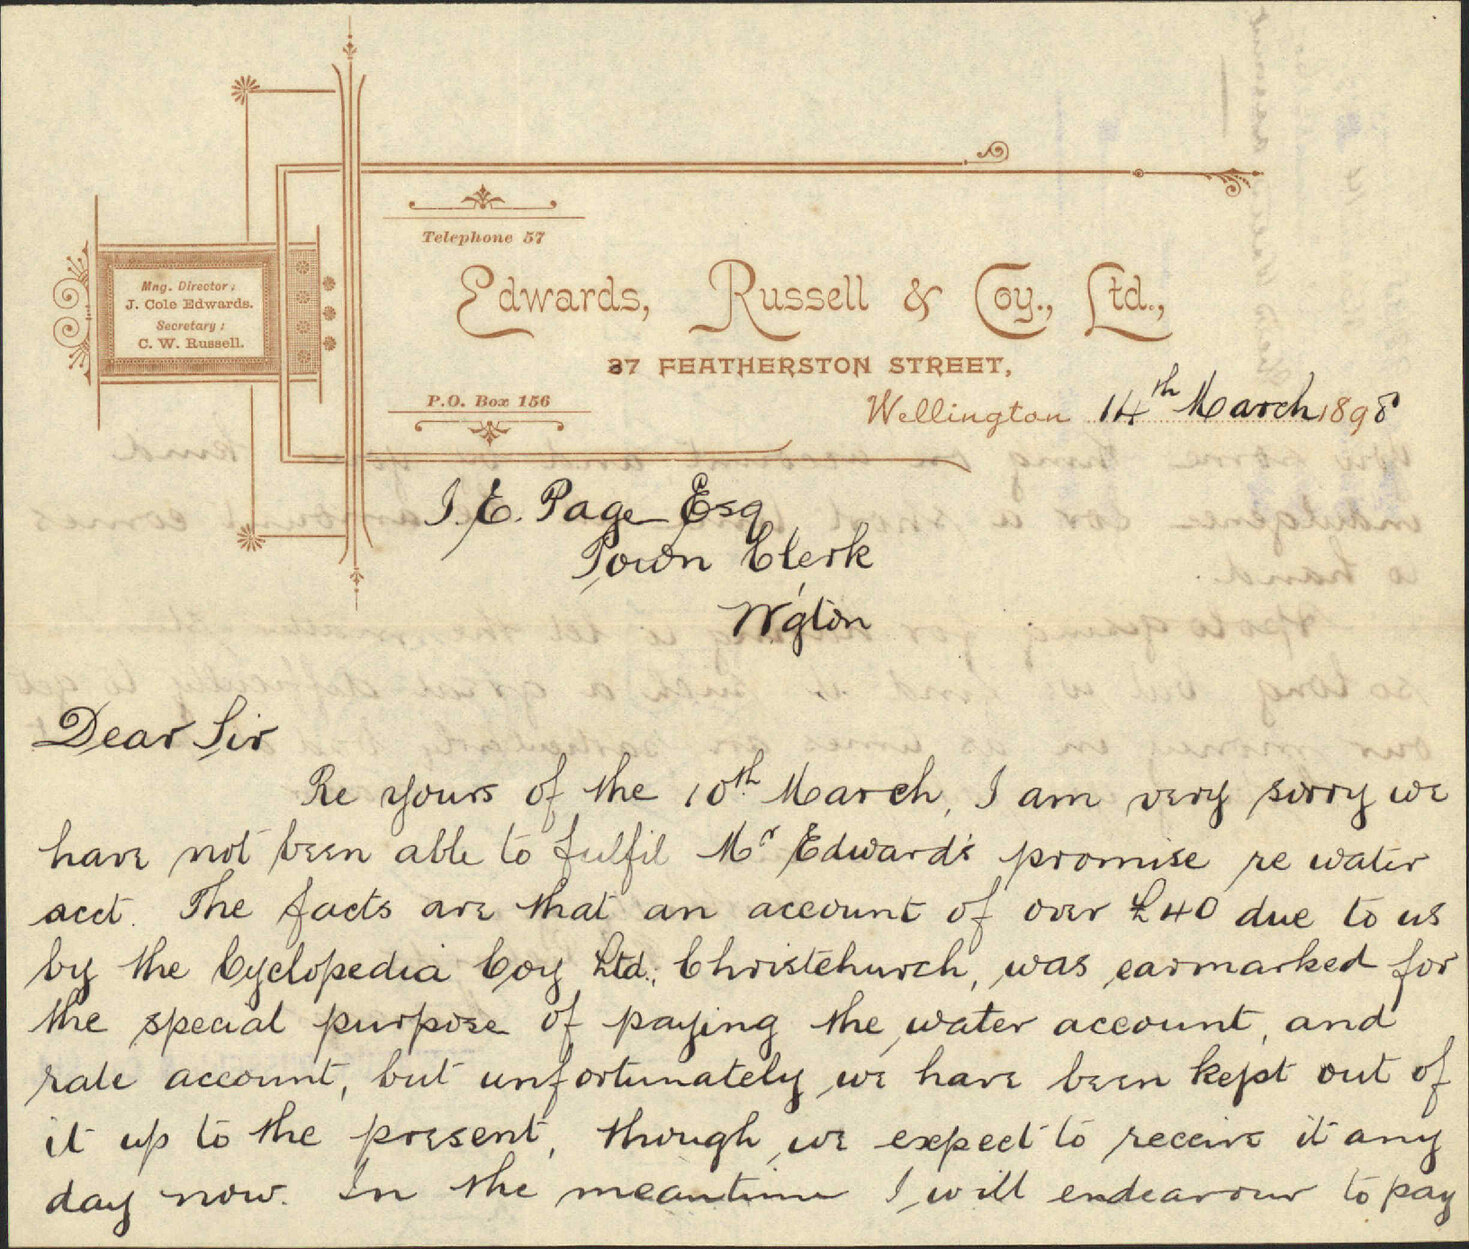 Telephone 57
Mng. Director;
J. Cole Edwards.
Secretary;
C. W. Russell.
Edwards, Russell & Coy., Ltd.,
37 FEATHERSTON STREET,
P.O. Box 156
Wellington 14th March 1898
J. E. Page Esq
Town Clerk
W'gton
Dear Sir
Re yours of the 10th March, I am very sorry we
have not been able to fulfil Mr Edward's promise re water
acct. The facts are that an account of over £40 due to us
by the Cyclopedia Coy Ltd., Christchurch, was earmarked for
the special purpose of paying the water account, and
rate account, but unfortunately we have been kept out of
it up to the present, though we expect to receive it any
day now. In the meantime I will endeavour to pay